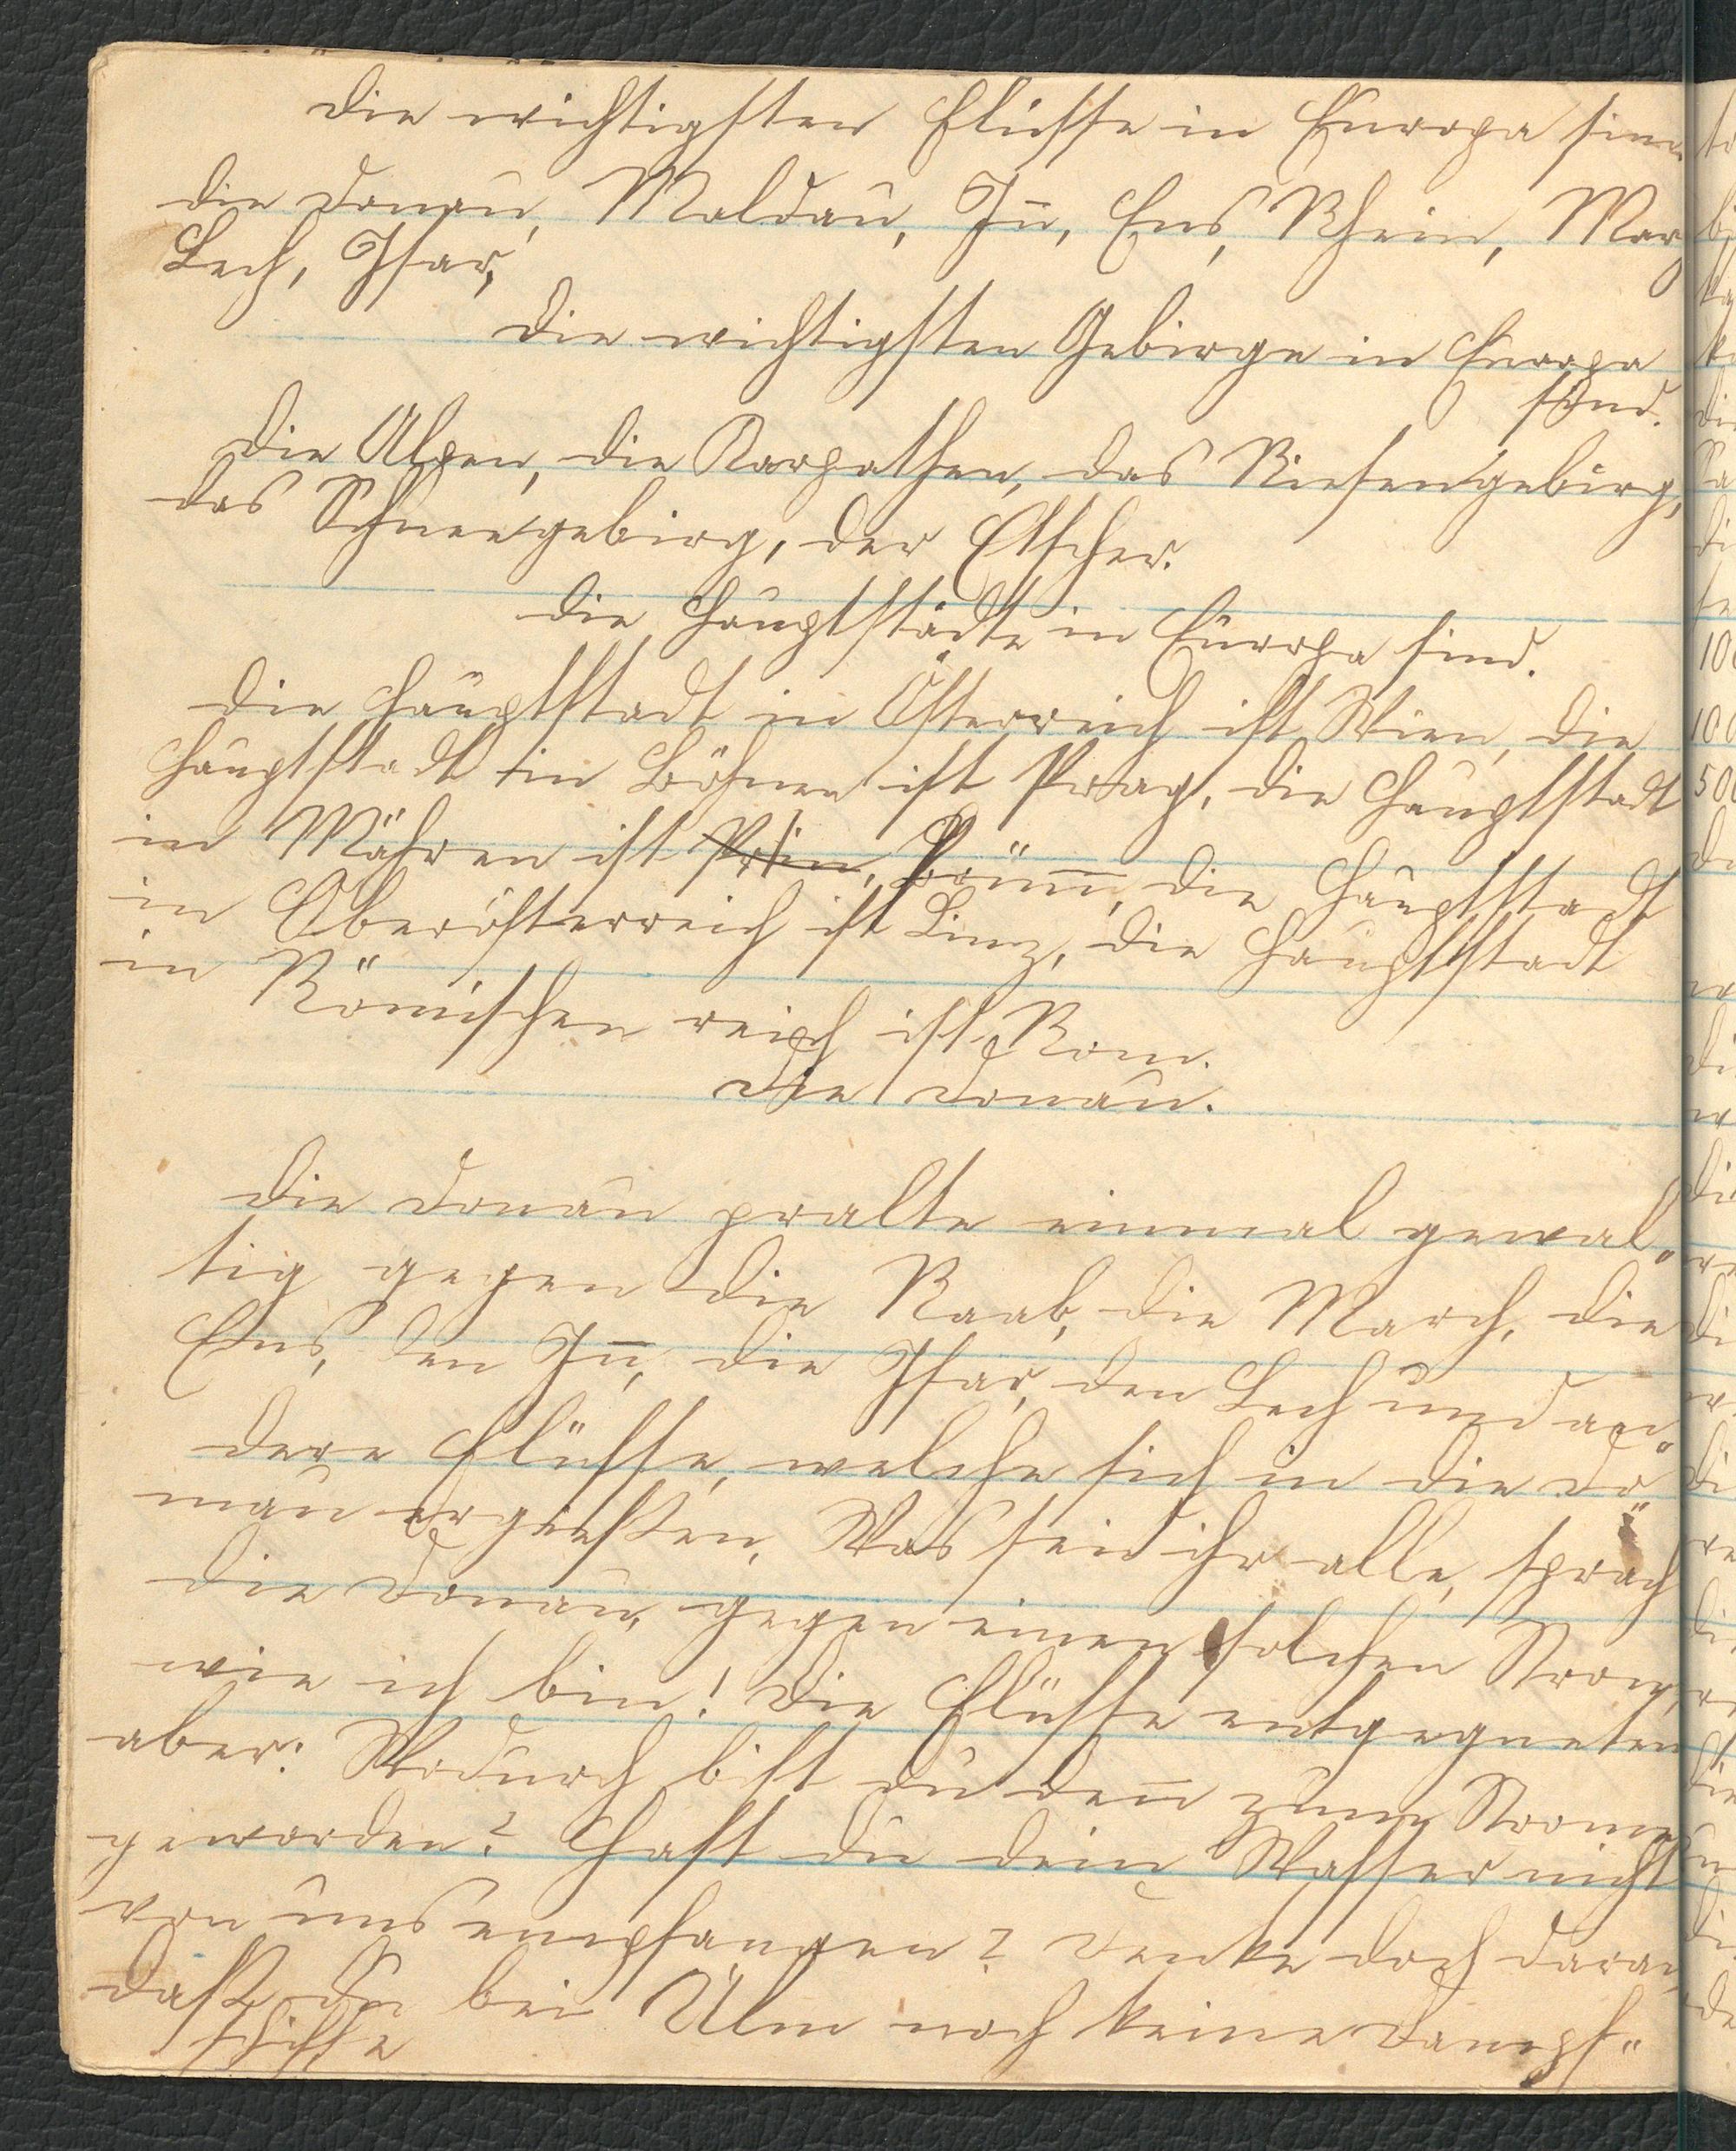 Die wichtigsten Flüsse in Europa sind
die Donau, Moldau, Iñ, Ens, Rhein, Mar
Lech, Isar,
Die wichtigsten Gebirge in Europa
sind.
Die Alpen, die Karpathen, das Riesengebirg,
das Schneegebirg, der Etscher.
Die Hauptstädte in Europa sind.
Die Hauptstadt in Österreich ist Wien, die
Hauptstadt in Böhmen ist Prag, die Hauptstadt
in Mähren ist Prün, Brünn, die Hauptstadt
in Oberösterreich ist Linz, die Hauptstadt
in Römischen reich ist Rom.
Die Donau.
Die Donau pralte einmal gewal„
tig gegen die Raab, die March, die
Ens, den Iñ, die Isar, den Lech und an„
dere Flüsse, welche sich in die Do„
nau ergießen, Was seid ihr alle, sprach
die Donau, gegen einen solchen Strom,
wie ich bin! Die Flüsse entgegneten
aber: Wodurch bist du deñ zum Strome
geworden? Hast du dein Wasser nicht
von uns empfangen? Denke doch daran,
daß du bei Ulm noch keine Dampf„
schiffe